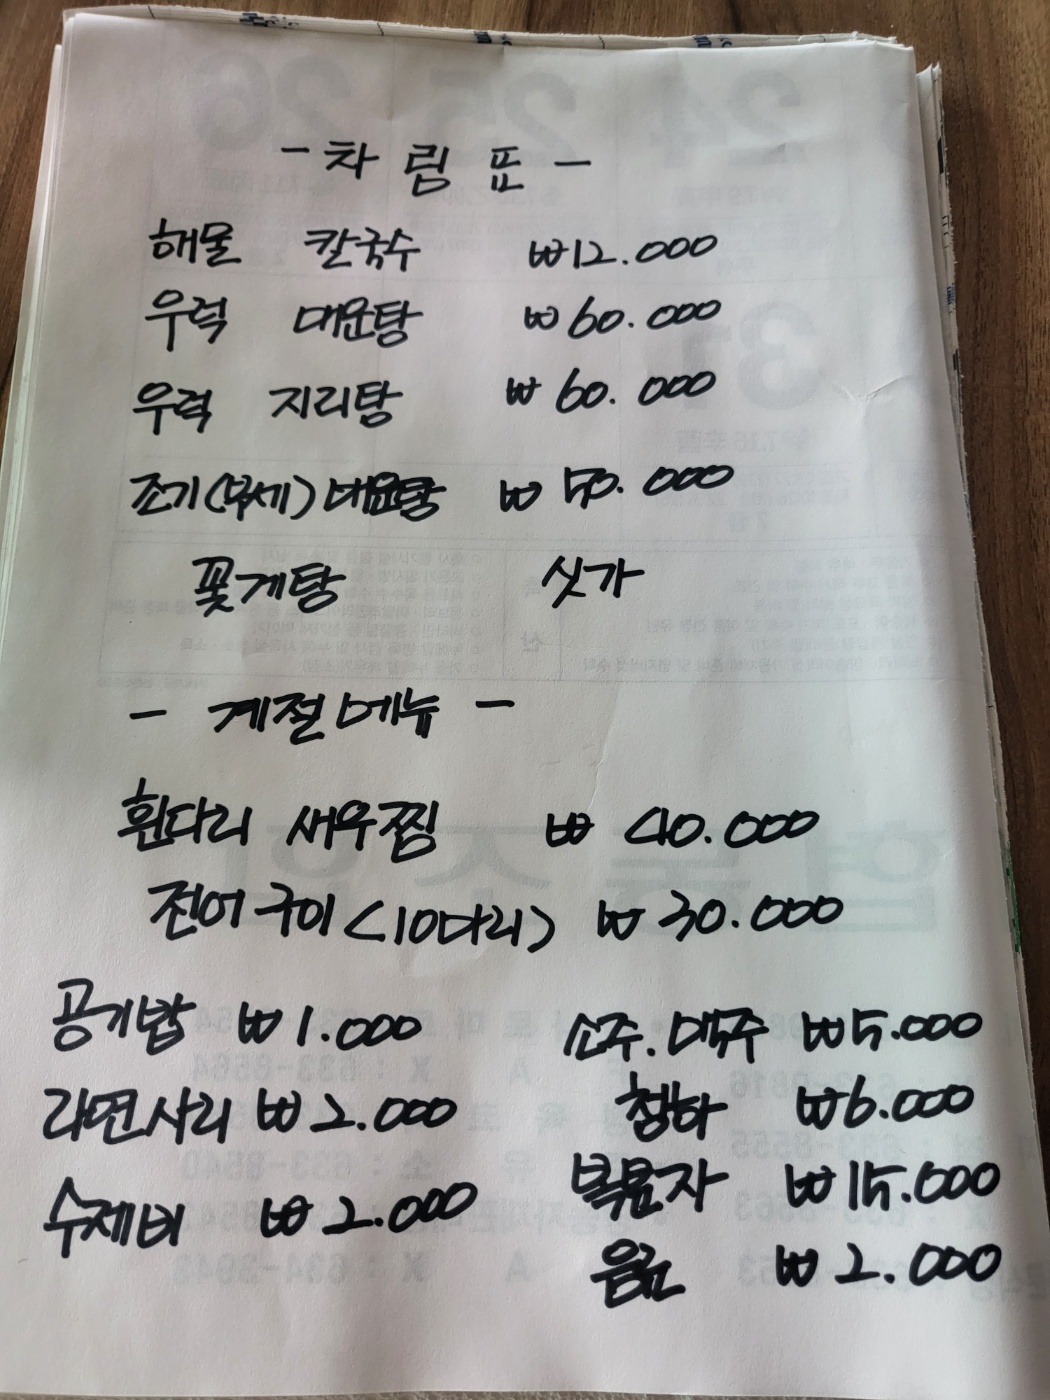 - 차림표 -
해물 칼국수 ₩12.000
우럭 매운탕 ₩60.000
우럭 지리탕 ₩60.000
조기(부세) 매운탕 ₩50.000
꽃게탕 싯가
- 계절메뉴 -
흰다리 새우찜 ₩40.000
전어구이 <10마리> ₩30.000
공기밥 ₩1.000 소주.맥주 ₩5.000
라면사리 ₩2.000 청하 ₩6.000
수제비 ₩2.000 복분자 ₩15.000
음료 ₩2.000